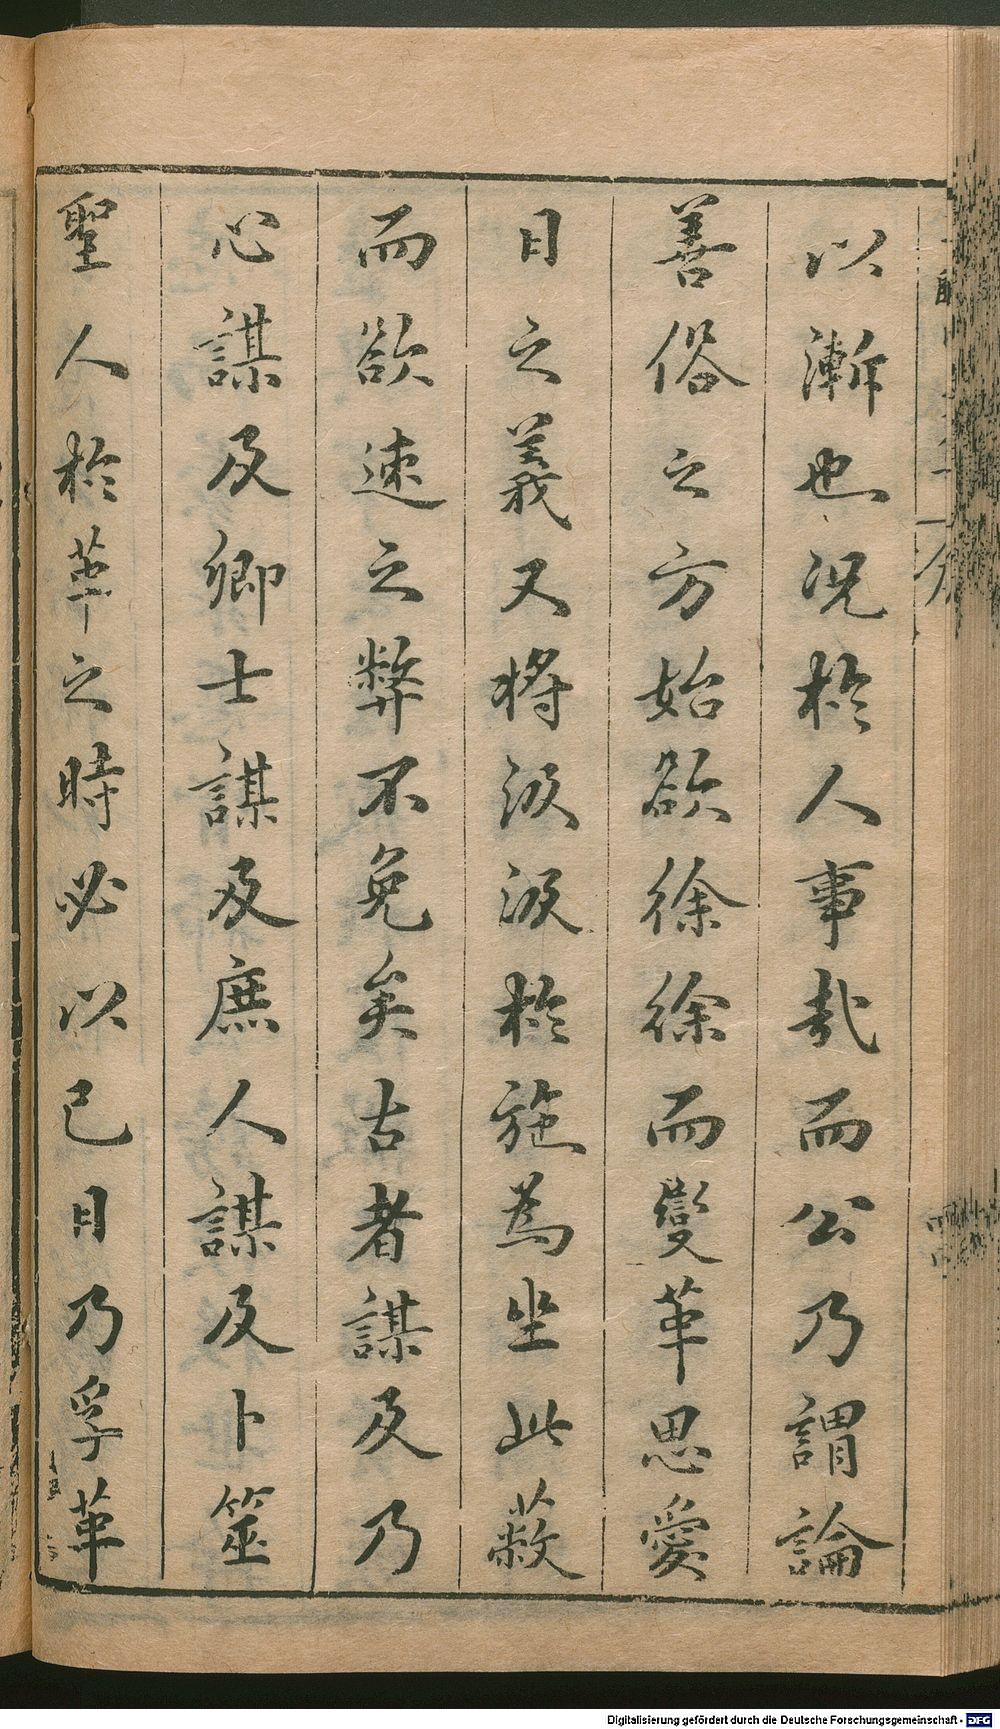 以漸也況於人事哉而公乃謂論
善俗之方始欲徐徐而變革思愛
日之義又將汲汲於施為坐此蔽
而欲速之弊不免矣古者謀及乃
心謀及卿士謀及庶人謀及卜筮
聖人於革之時必以已日乃孚革
Digitalisierung gefördert durch die Deutsche Forschungsgemeinschaft - DFG